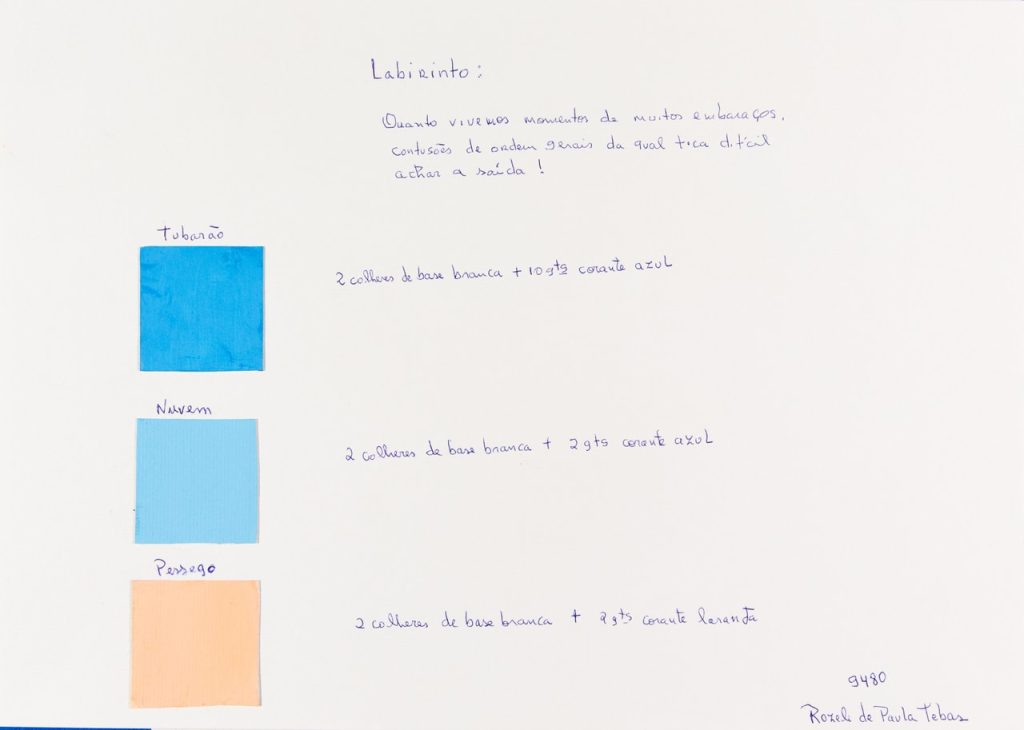 Labirinto:
Quanto vivemos momentos de muitos embaraços,
confusões de ordem gerais da qual fica difícil
achar a saída!
Tubarão
2 colheres de base branca + 10 gts corante azul
Nuvem
2 colheres de base branca + 2 gts corante azul
Pessego
2 colheres de base branca + 2 gts corante laranja
9480
Rozeli de Paula Tebas